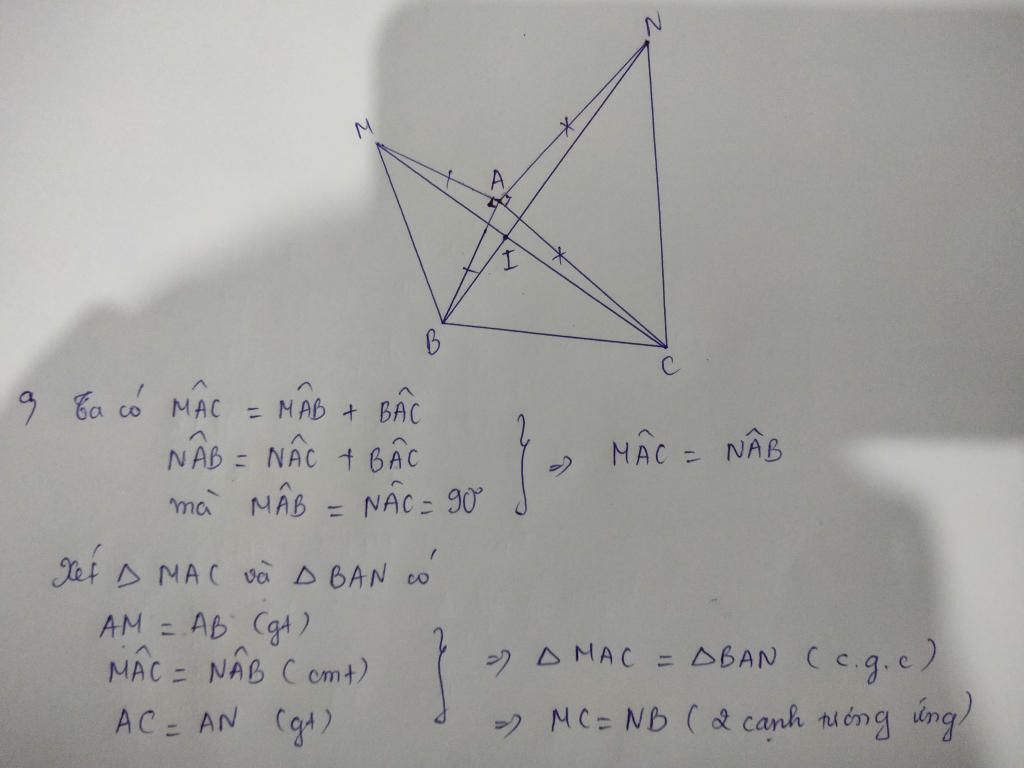 N
M
A
I
B
C
a) Ta có MÂC = MÂB + BÂC
NÂB = NÂC + BÂC
mà MÂB = NÂC = 90°
} => MÂC = NÂB
Xét Δ MAC và Δ BAN có
AM = AB (gt)
MÂC = NÂB (cmt)
AC = AN (gt)
} => Δ MAC = ΔBAN (c.g.c)
=> MC = NB (2 cạnh tương ứng)